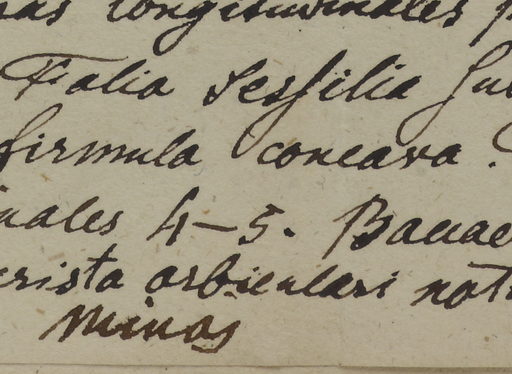 longitudinales
Folia Sessilia
firmula concava.
nales 4–5. Baccae
crista orbiculari not
minor